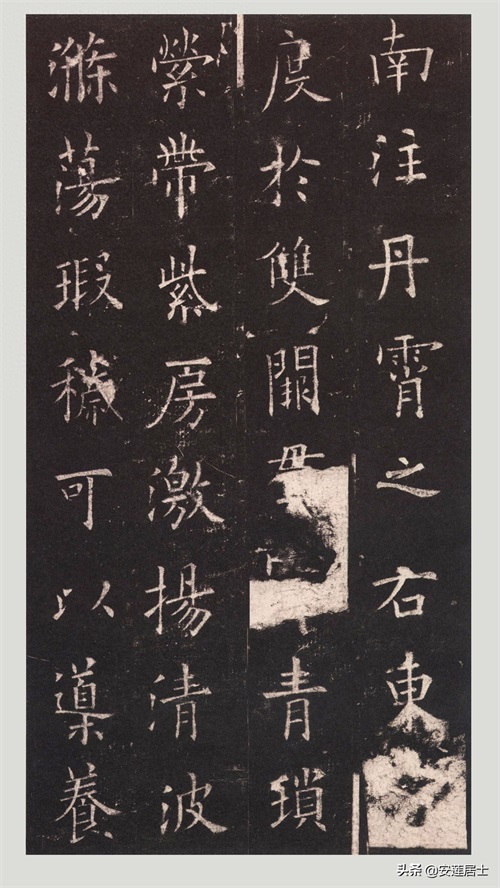 南注丹霄之右東
度於雙闕青瑣
縈帶紫房激揚清波
滌蕩瑕穢可以導養
头条 @安莲居士